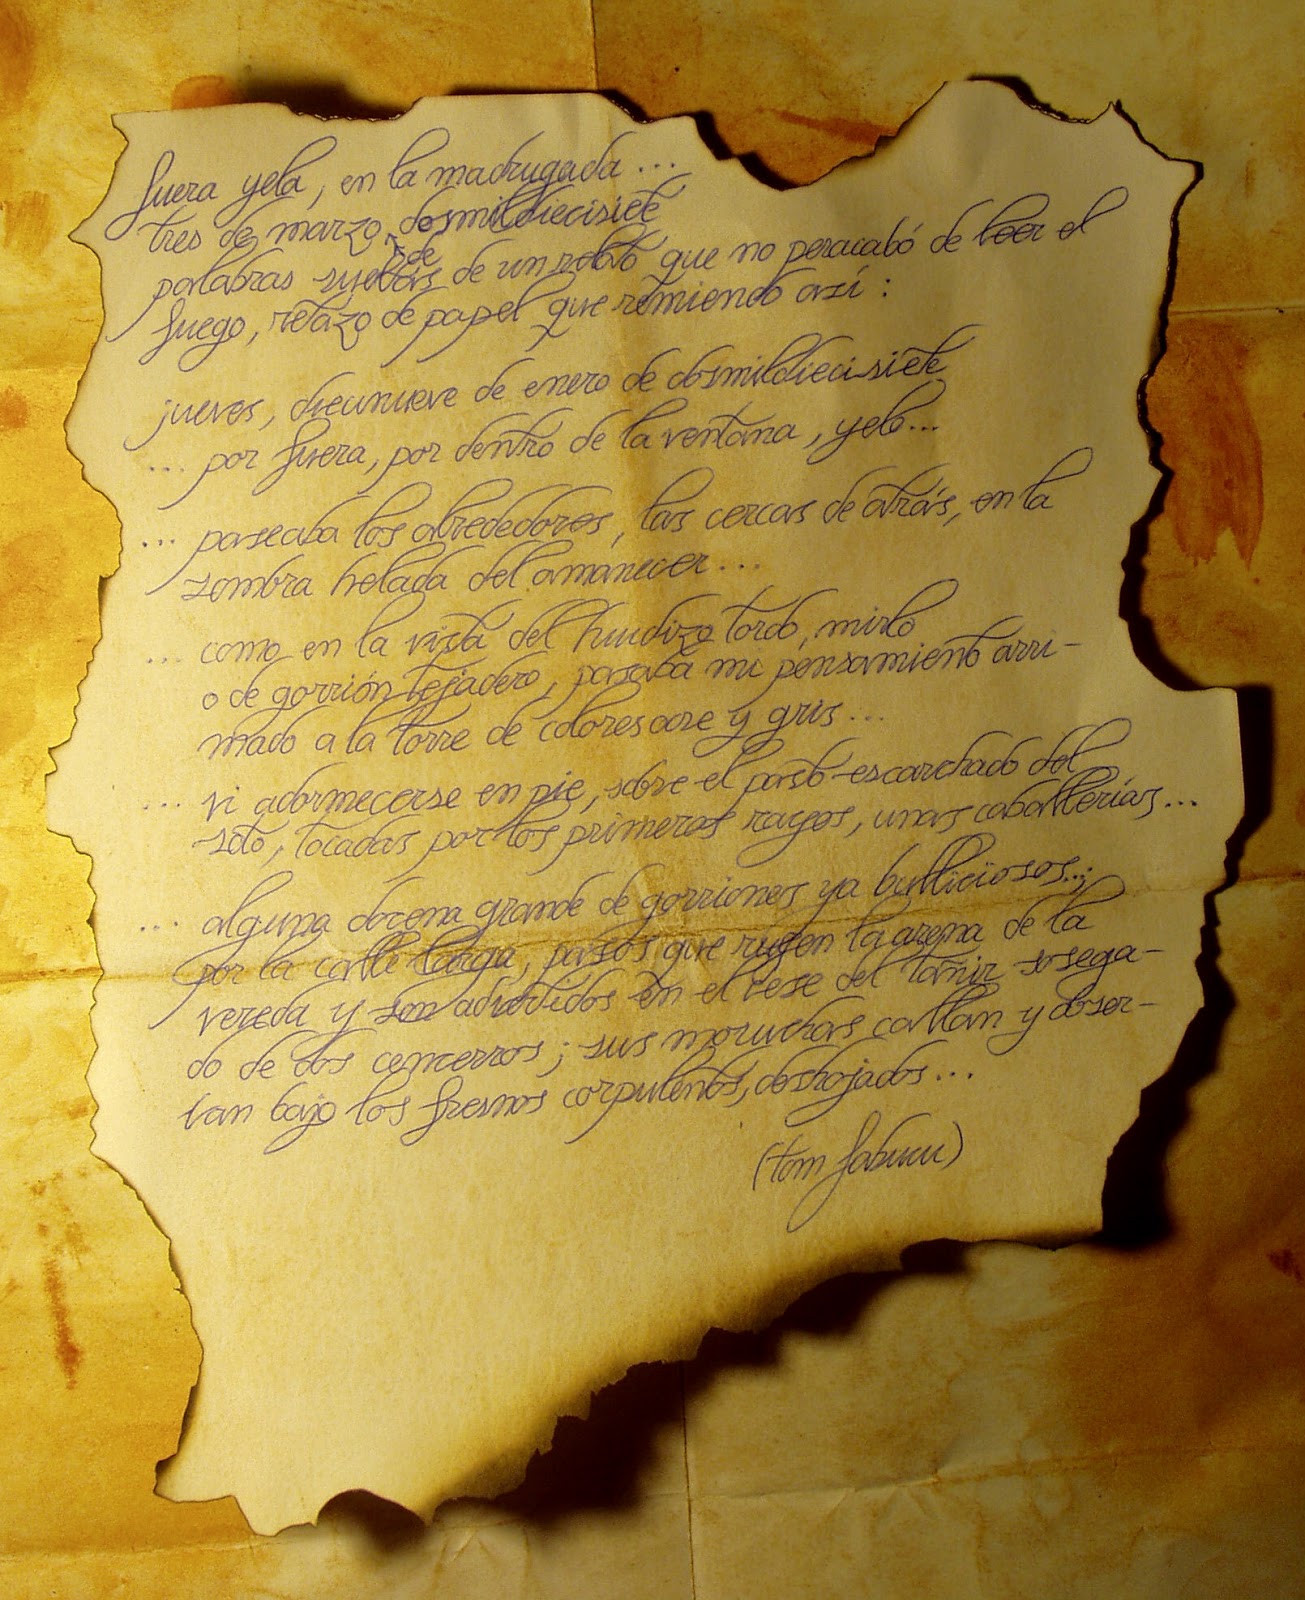 fuera yela, en la madrugada...
tres de marzo de dosmildiecisiete
palabras sueltas de un relato que no peracabó de leer el
fuego, retazo de papel que remiendo así:
jueves, diecinueve de enero de dosmildiecisiete
... por fuera, por dentro de la ventana, yelo...
... paseaba los alrededores, las cercas de atrás, en la
sombra helada del amanecer...
... como en la vista del huidizo tordo, mirlo
o de gorrión tejadero, pasaba mi pensamiento arri-
mado a la torre de colores ocre y gris...
... vi adormecerse en pie, sobre el pasto escarchado del
soto, tocadas por los primeros rayos, unas caballerías...
... alguna docena grande de gorriones ya bulliciosos...;
por la calle larga, pasos que rugen la arena de la
vereda y son advertidos en el cese del tañir sosega-
do de los cencerros; sus moruchas callan y obser-
van bajo los fresnos corpulentos, deshojados...
(tom